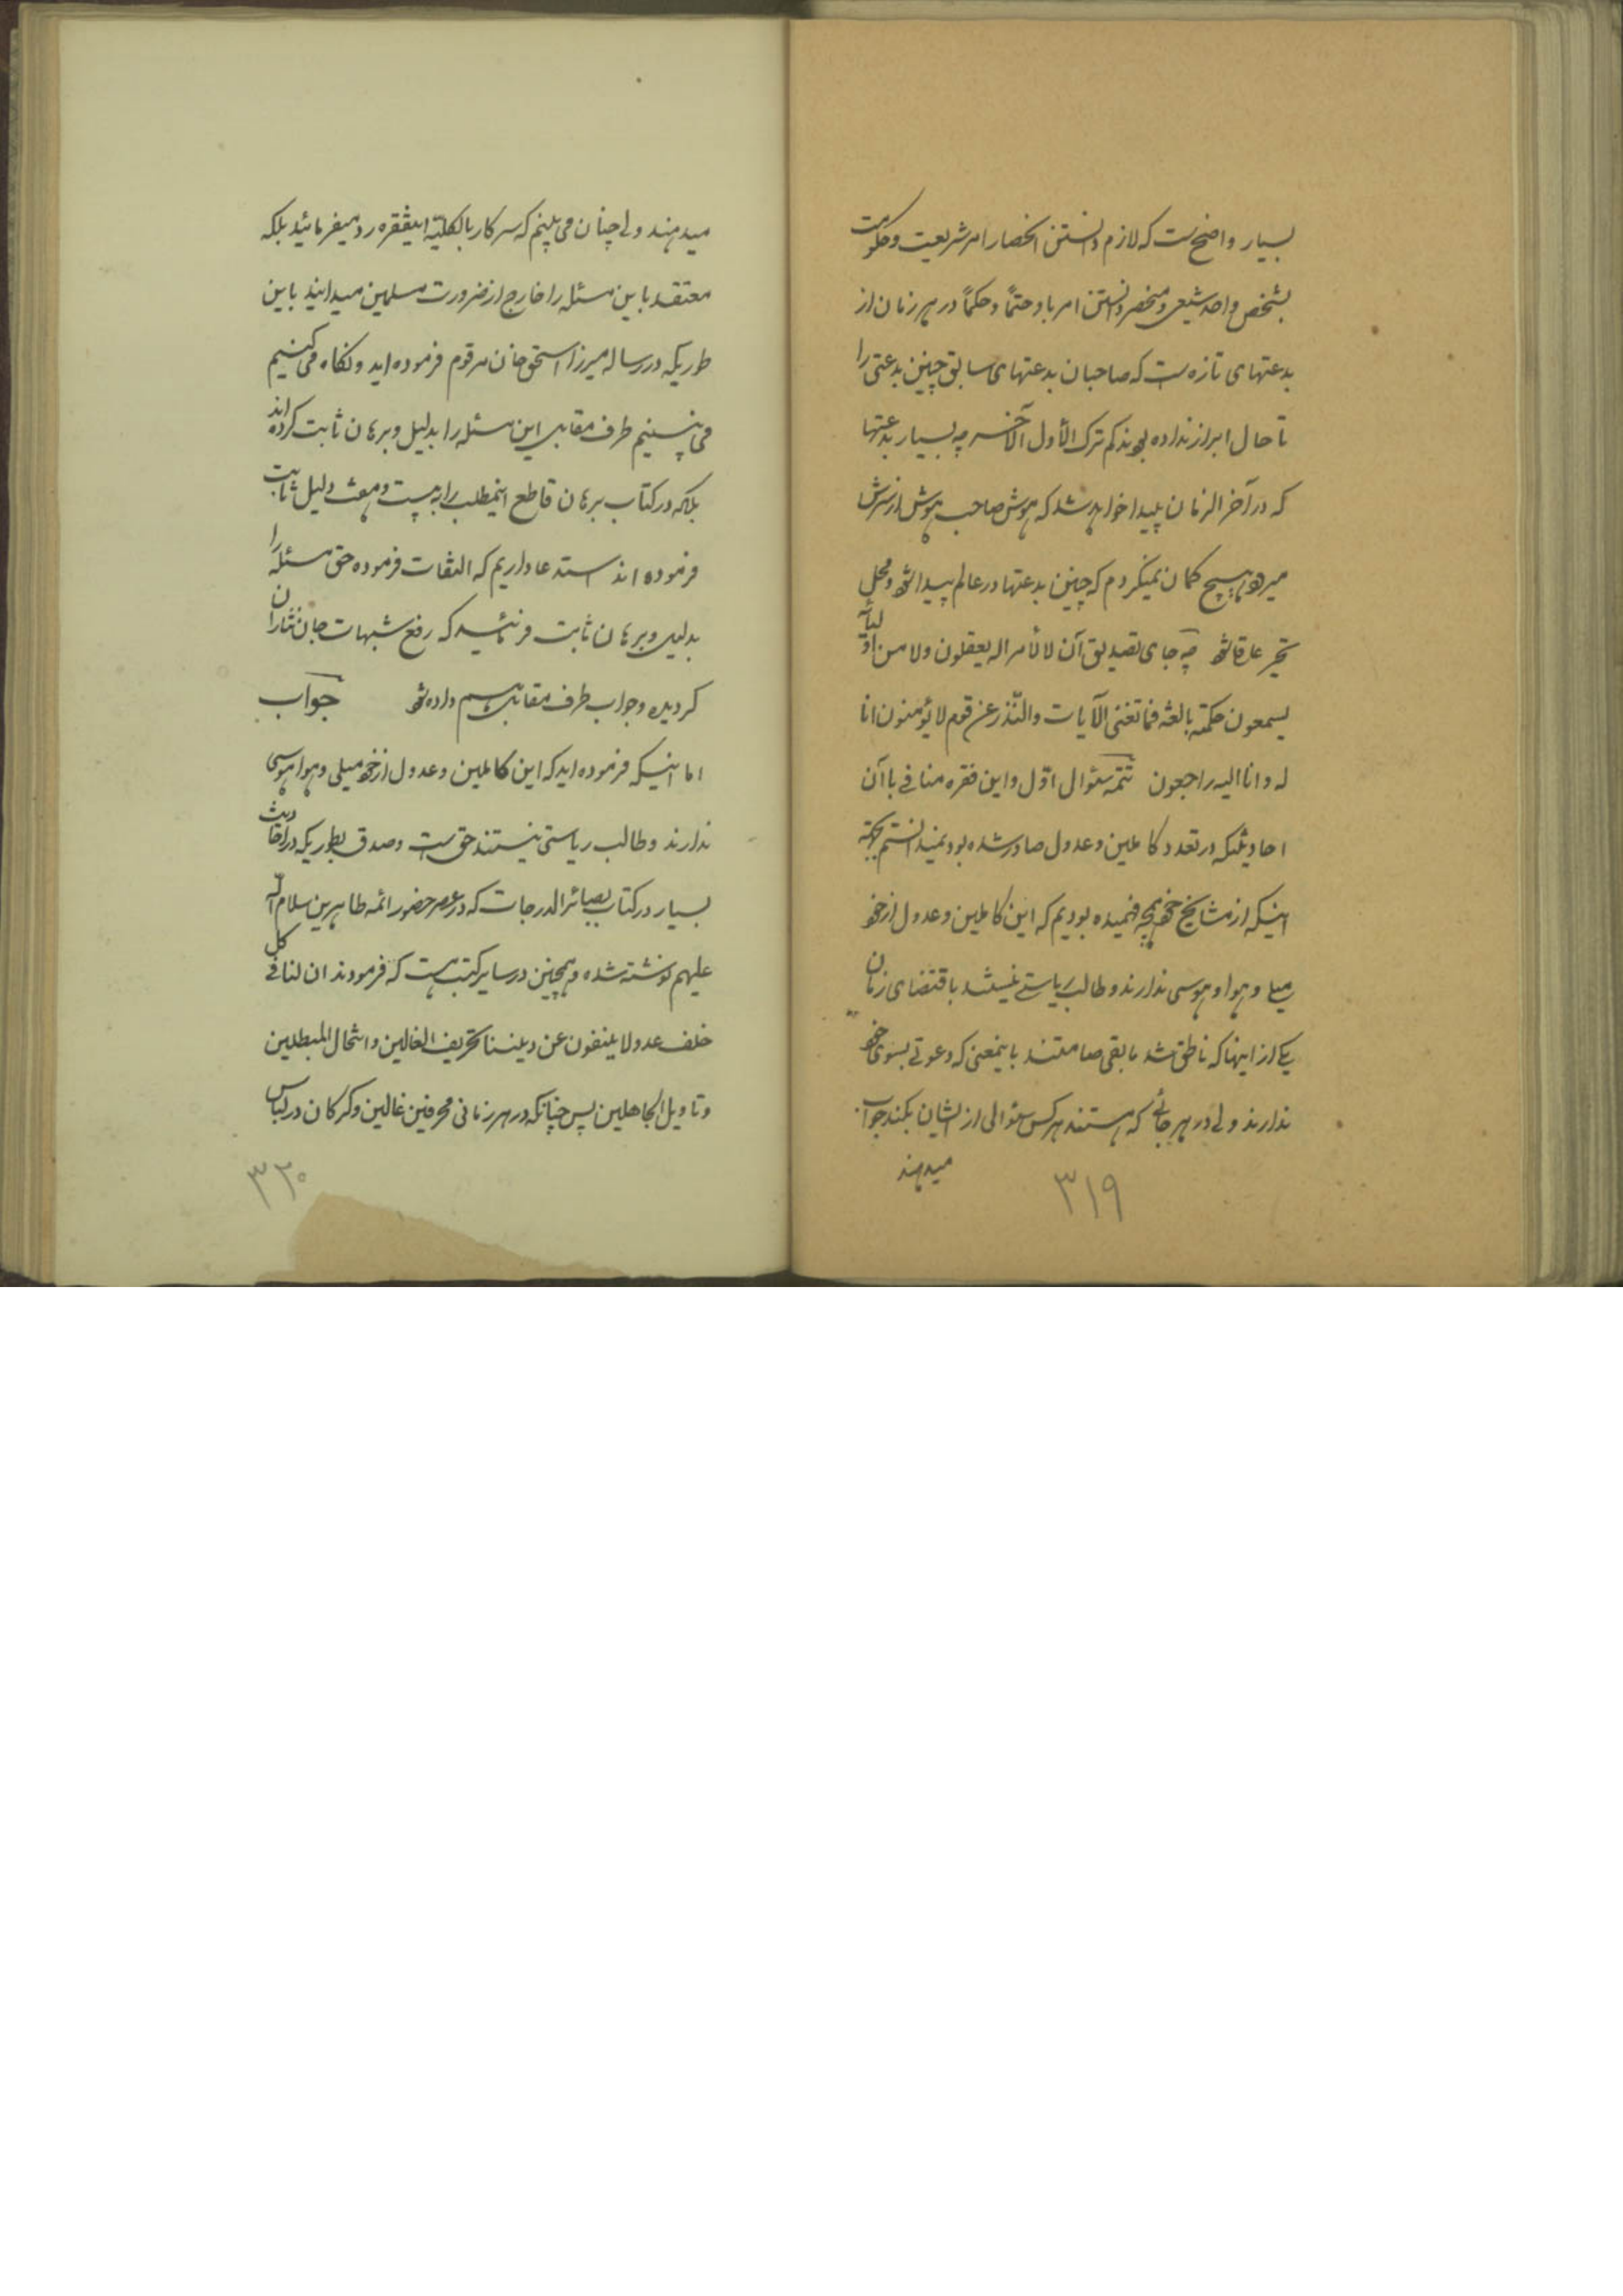 بسیار واضح است که لازم دانستن انحصار امر شریعت و حکومت
بشخص واحد شیعی و منحصر دانستن امر باو حتماً و حکماً در هر زمان از
بدعتهای تازه است که صاحبان بدعتهای سابق چنین بدعتی را
تا حال ابراز نداده بودند کم ترک الأول الآخر چه بسیار بدعتها
که در آخر الزمان پیدا خواهد شد که هوش صاحب هوش از سرش
میرود هیچ کمان نمیکردم که چنین بدعتها در عالم پیدا شود و محل
تحیر عارفان شود چه جای تصدیق آن لا لأمر اله یعقلون ولا من اولیائه
یسمعون حکمة بالغه فما تغنی الآیات والنّذر عن قوم لا یؤمنون انا
له وانا الیه راجعون تتمه سئوال اوّل واین فقره منافی با آن
احادیثیکه در تعدد کاملین وعدول صادر شده بود نمیدانستم بجهة
اینکه از مشایخ خود همچه فهمیده بودیم که این کاملین وعدول از خود
میلی وهوا وهوسی ندارند وطالب ریاستی نیستند باقتضای زمان
یکی از اینها که ناطق شد مابقی صامتند باینمعنی که دعوتی بسوی خود
ندارند ولی در هر جائی که هستند هر کس سئوالی از ایشان بکند جواب
میدهند
۳۱۹
میدهند ولی چنان می بینم که سرکار بالکلیّه اینفقره رد میفرمائید بلکه
معتقد باین مسئله را خارج از ضرورت مسلمین میدانید باین
طوریکه در رساله میرزا اسحق خان مرقوم فرموده اید ونکاه می کنیم
می بینیم طرف مقابل این مسئله را بدلیل وبرهان ثابت کرده اند
بلکه در کتاب برهان قاطع اینمطلب را به بیست وهشت دلیل ثابت
فرموده اند استدعا داریم که التفات فرموده حق مسئله را
بدلیل وبرهان ثابت فرمائید که رفع شبهات جان نثاران
کردیده وجواب طرف مقابل هم داده شود جواب
اما اینکه فرموده اید که این کاملین وعدول از خود میلی وهوا هوسی
ندارند وطالب ریاستی نیستند حق است وصدق بطوریکه در احادیث
بسیار در کتاب بصائر الدرجات که در عصر حضور ائمه طاهرین سلام الله
علیهم نوشته شده وهمچنین در سایر کتب هست که فرمودند ان لنا فی کل
خلف عدولا ینفون عن دیننا تحریف الغالین وانتحال المبطلین
وتاویل الجاهلین پس چنانکه در هر زمانی محرفین غالین وکرکان در لباس
۳۲۰